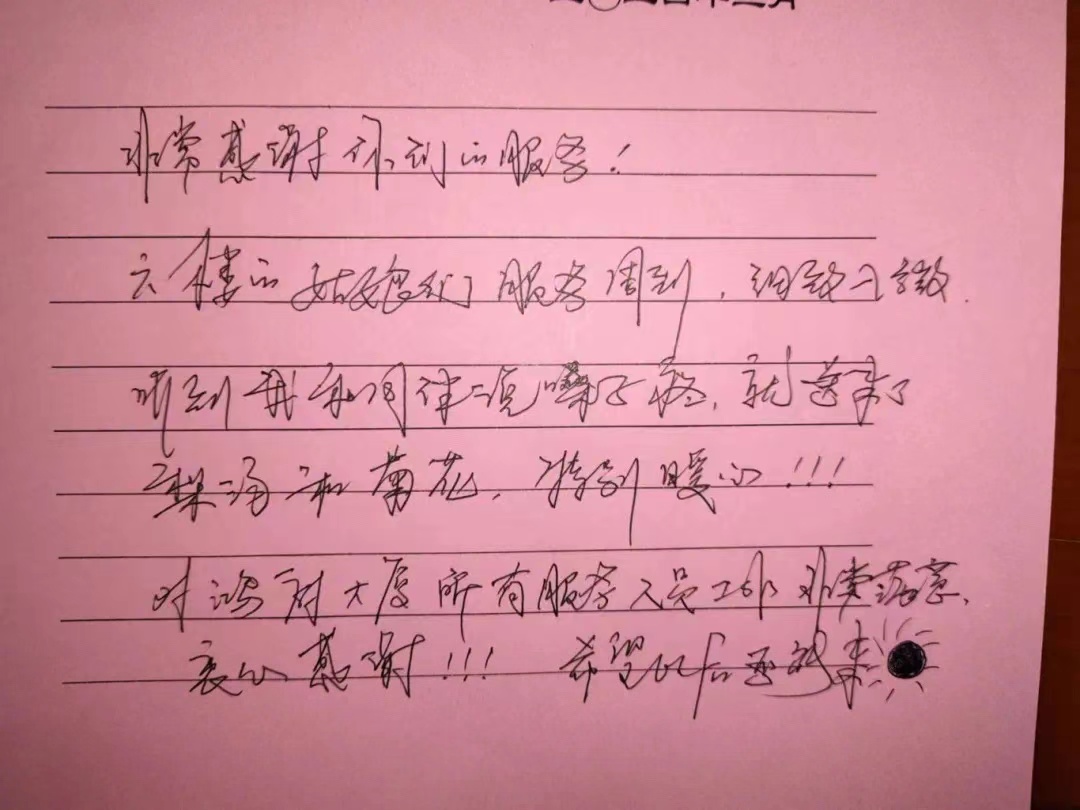 非常感谢你们的服务！
六楼的姑娘们服务周到，细致入微．
听到我和同伴说嗓子疼，就送来了
梨汤和菊花，特别暖心!!!
对鸿府大厦所有服务人员工作非常满意、
衷心感谢!!! 希望以后再来